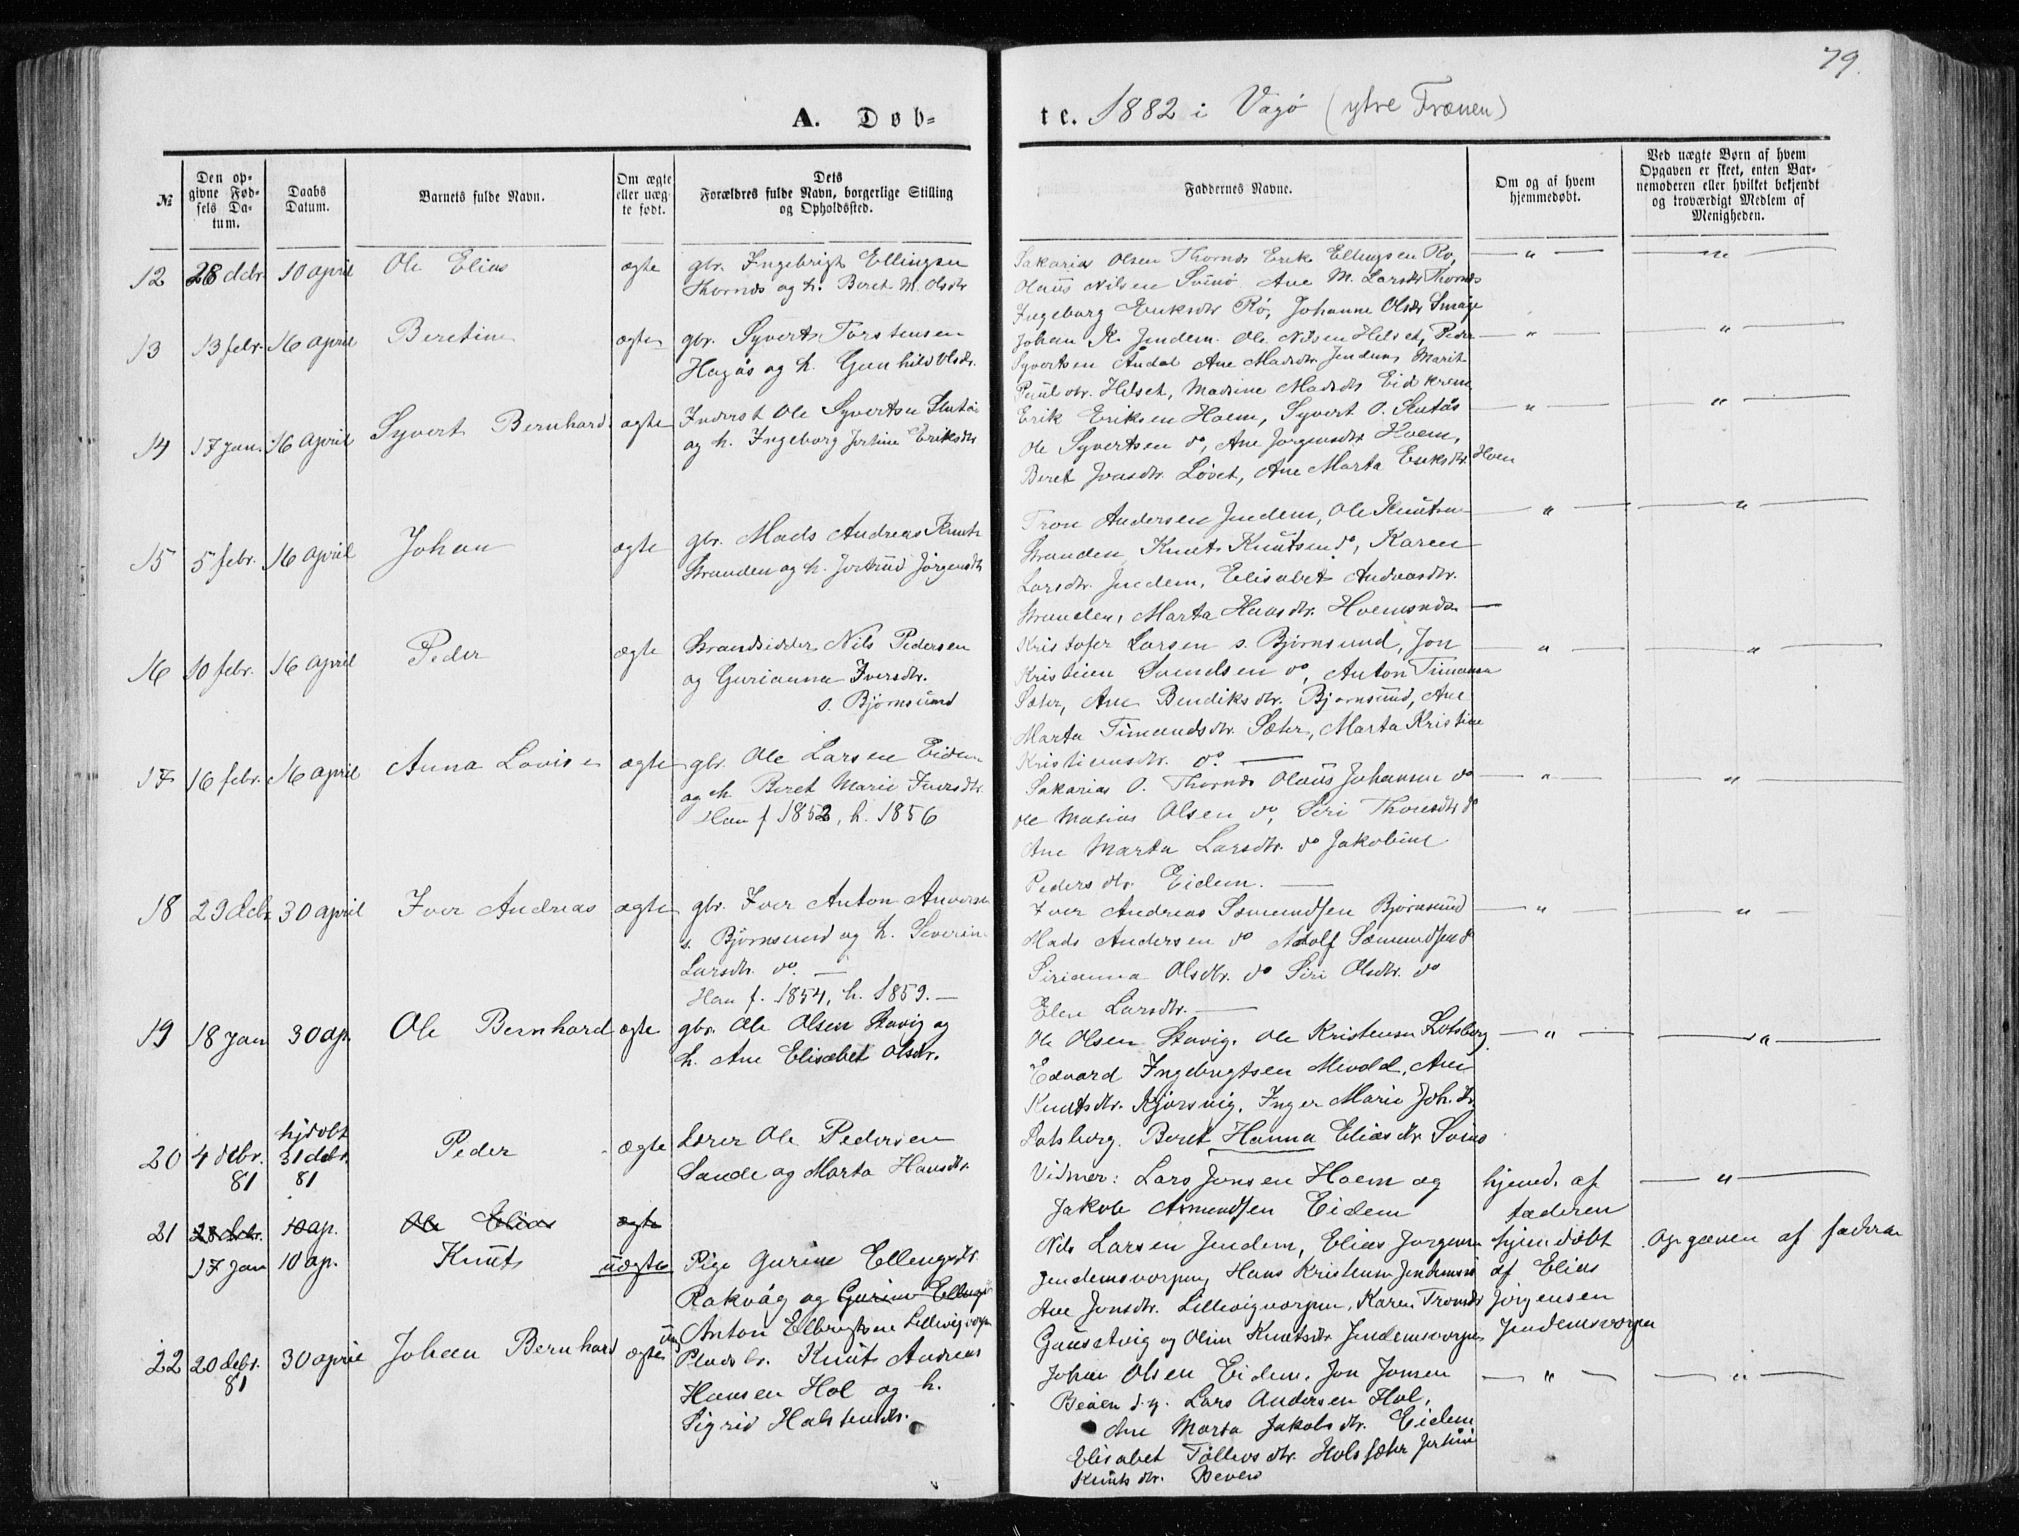 79.
A. Døb-
te. 1882 i Vagø (ytre Frænen)
№
Den op-
givne Fød-
sels Da-
tum.
Daabs
Datum.
Barnets fulde Navn.
Om ægte
eller uæg-
te født.
Dets
Forældres fulde Navn, borgerlige Stilling
og Opholdssted.
Faddernes Navne.
Om og af hvem
hjemmedøbt.
Ved uægte Børn af hvem
Opgaven er skeet, enten Bar-
nemoderen eller hvilket bekjendt
og troværdigt Medlem af
Menigheden.
12 28 debr. 10 april Ole Elias ægte gbr. Ingebrigt Ellingsen
Thornæs og h. Beret M. Olsdtr
Sakarias Olsen Thornæs Erik Ellingsen Rø,
Olaus Nilsen Svinø, Ane M. Larsdtr Thornæs
Ingeborg Eriksdtr Rø, Johanne Olsdtr Småge
13 13 febr. 16 april Beretine ægte gbr. Syvert Torstensen
Hagås og h. Gunhild Olsdr.
Johan K. Jendem. Ole Nilsen Helset, Peder
Syvertsen Åndal Ane Madsdtr. Jendem, Marit
Paulsdtr. Helset, Madine Madsdtr Eidkrem
14 17 Jan. 16 April Syvert Bernhard ægte Inderst Ole Syvertsen Slutås
og h. Ingeborg Jertine Eriksdtr
Erik Eriksen Hoem, Syvert O. Slutås
Ole Syvertsen do, Ane Jørgensdtr Hoem,
Beret Jonsdtr. Løvet, Ane Marta Eriksdtr. Hoem
15 5 febr. 16 april Johan ægte gbr. Mads Andreas Knuts
Stranden og h. Jertrud Jørgensdtr
Tron Andersen Jendem, Ole Knutsen
Stranden, Knut Knutsen do, Karen
Larsdtr. Jendem, Elisabet Andreasdtr.
Stranden, Marta Hansdtr. Hoemsnæs
16 10 febr. 16 april Peder ægte Strandsidder Nils Pedersen
og Gurianna Iversdtr.
s. Bjørnsund
Kristofer Larsen s. Bjørnsund, Jon
Kristian Svendsen do, Anton Timansen
Sæter, Ane Bendiksdtr. Bjørnsund, Ane
Marta Timandsdtr. Sæter, Marta Kristine
Kristiansdtr. do.
17 16 febr. 16 april Anna Lovise ægte gbr. Ole Larsen Eidem
og h. Beret Marie Iversdtr.
Han f 1852, h. 1856
Sakarias O. Thornæs Olaus Johansen do
Ole Matias Olsen do, Siri Thoresdtr do
Ane Marta Larsdtr. do Jakobine
Pedersdtr. Eidem.
18 29 debr. 30 april Iver Andreas ægte gbr. Iver Anton
s. Bjørnsund og h. Severin
Larsdtr. do.
Han f. 1854, h. 1859.
Iver Andreas Sæmundsen Bjørnsund
Mads Andersen do Adolf Sæmundsen do
Sirianna Olsdtr. do Siri Olsdtr. do
Elen Larsdtr.
19 18 Jan 30 ap. Ole Bernhard ægte gbr. Ole Olsen Stavig og
h. Ane Elisabet Olsdtr.
Ole Olsen Stavig. Ole Kristensen Lotsberg
Edvard Ingebrigtsen Mevold, Ane
Knutsdtr. Kjørsvig, Inger Marie Joh.dtr
Lotsberg. Beret Hanna Eliasdtr Svinø
20 4 debr. 81 hjdøbt 31 debr. 81 Peder ægte Lærer Ole Pedersen
Sande og Marta Hansdtr.
Vidner: Lars Jensen Hoem og
Jakob Amundsen Eidem
hjemd. af
faderen
21 28 debr. 10 ap. Ole Elias ægte
17 Jan 10 ap. Knut uægte Pige Gurine Ellingsdtr
Rakvåg og Gurine Ellings
Anton Elbrigtsen Lillevigvorpen
Nils Larsen Jendem, Elias Jørgensen
Jendemsvorpen, Hans Kristensen Jendemsvo
Ane Jonsdtr. Lillevigvorpen, Karen Tronsdtr
Gausetvig og Oline Knutsdtr Jendemsvorpen
hjemdøbt
af Elias
Jørgensen
Jendemsvorpen
Opgaven af faderen
22 20 debr. 81 30 april Johan Bernhard ægte Pladsbr. Knut Andreas
Hansen Hol og h.
Sigrid Halstensdtr.
Johan Olsen Eidem, Jon Jonsen
Beåen d.y. Lars Andersen Hol,
Ane Marta Jakobsdtr. Eidem
Elisabet Tollevsdtr. Holssæter Jertine
Knutsdtr. Bevers